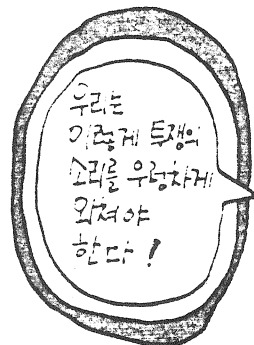 우리는
이렇게 투쟁의
소리를 우렁차게
외쳐야
한다!